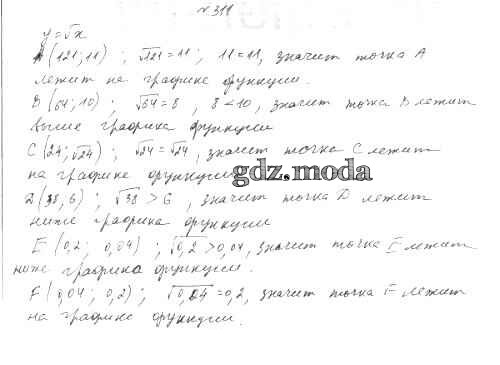 № 311
y=√x
A (121; 11) ; √121 = 11 ; 11 = 11, значит точка A
лежит на графике функции.
B (64; 10) ; √64 = 8 , 8 < 10 , значит точка B лежит
выше графика функции
C (24; √24) ; √24 = √24 , значит точка C лежит
на графике функции
gdz.moda
D (38, 6) ; √38 > 6 , значит точка D лежит
ниже графика функции
E (0,2; 0,04) ; √0,2 > 0,04, значит точка E лежит
ниже графика функции.
F (0,04; 0,2) ; √0,04 = 0,2, значит точка F лежит
на графике функции.